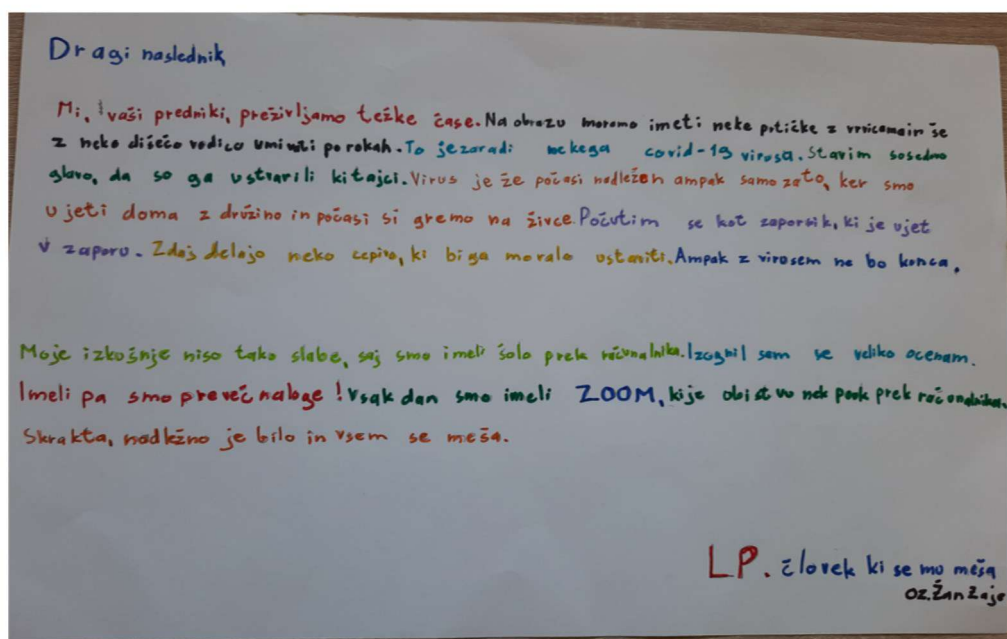 Dragi naslednik
Mi, vaši predniki, preživljamo težke čase. Na obrazu moramo imeti neke prtičke z vrvicama in še
z neko dišečo vodico umivati po rokah. To je zaradi nekega covid-19 virusa. Stavim sosedovo
glavo, da so ga ustvarili kitajci. Virus je že počasi nadležen ampak samo zato, ker smo
ujeti doma z družino in počasi si gremo na živce. Počutim se kot zapornik, ki je ujet
v zaporu. Zdaj delajo neko cepivo, ki bi ga moralo ustaviti. Ampak z virosem ne bo konca.
Moje izkušnje niso tako slabe, saj smo imeli šolo prek računalnika. Izognil sem se veliko ocenam.
Imeli pa smo preveč naloge! Vsak dan smo imeli ZOOM, ki je obistvu nek pouk prek računalnika.
Skratka, nadležno je bilo in vsem se meša.
LP. človek ki se mu meša
oz. Žan Zajc